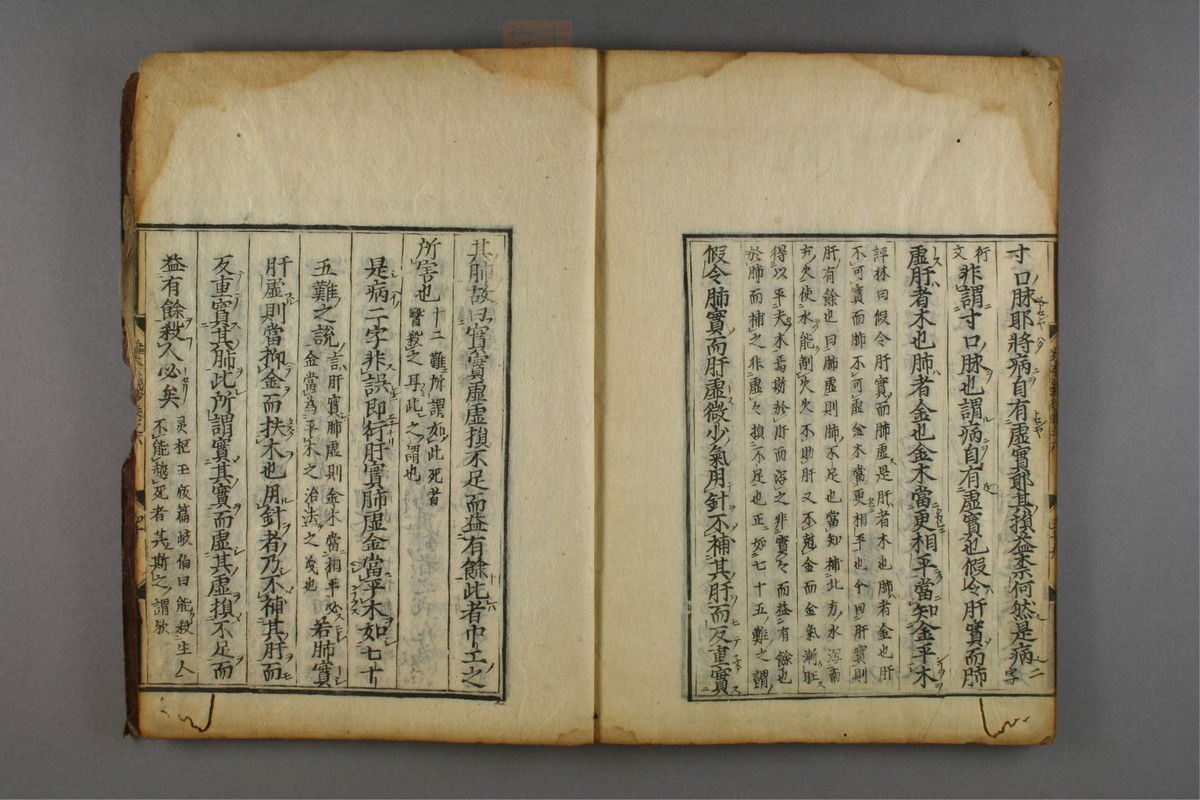 寸口脉耶將病自有虛實耶其損益柰何然是病二字
行文
非謂寸口脉也謂病自有虛實也假令肝實而肺
虛肝者木也肺者金也金木當更相平當知金平木
評林曰假令肝實而肺虛是肝者木也肺者金也肝
不可實而肺不可虛金木當更相平也今曰肝實則
肝有餘也曰肺虛則肺不足也當知補北方水瀉南
方火使水能制火火不助肝又不尅金而金氣漸旺
得以平夫木焉斯於肝而瀉之非實々而益有餘也
於肺而補之非虛々損不足也正如七十五難之謂
假令肺實而肝虛微少氣用針不補其肝而反重實
其肺故曰實實虛虛損不足而益有餘此者中工之
所害也
十二難所謂如此死者
醫殺之耳此之謂也
是病二字非誤即行肝實肺虛金當平木如七十
五難之說
言肝實肺虛則金木當相平必
金當為平木之治法之義也
若肺實
肝虛則當抑金而扶木也用針者乃不補其肝而
反重實其肺此所謂實其實而虛其虛損不足而
益有餘殺人必矣
灵枢玉版篇岐伯曰能殺生人
不能越死者其斯之謂歟